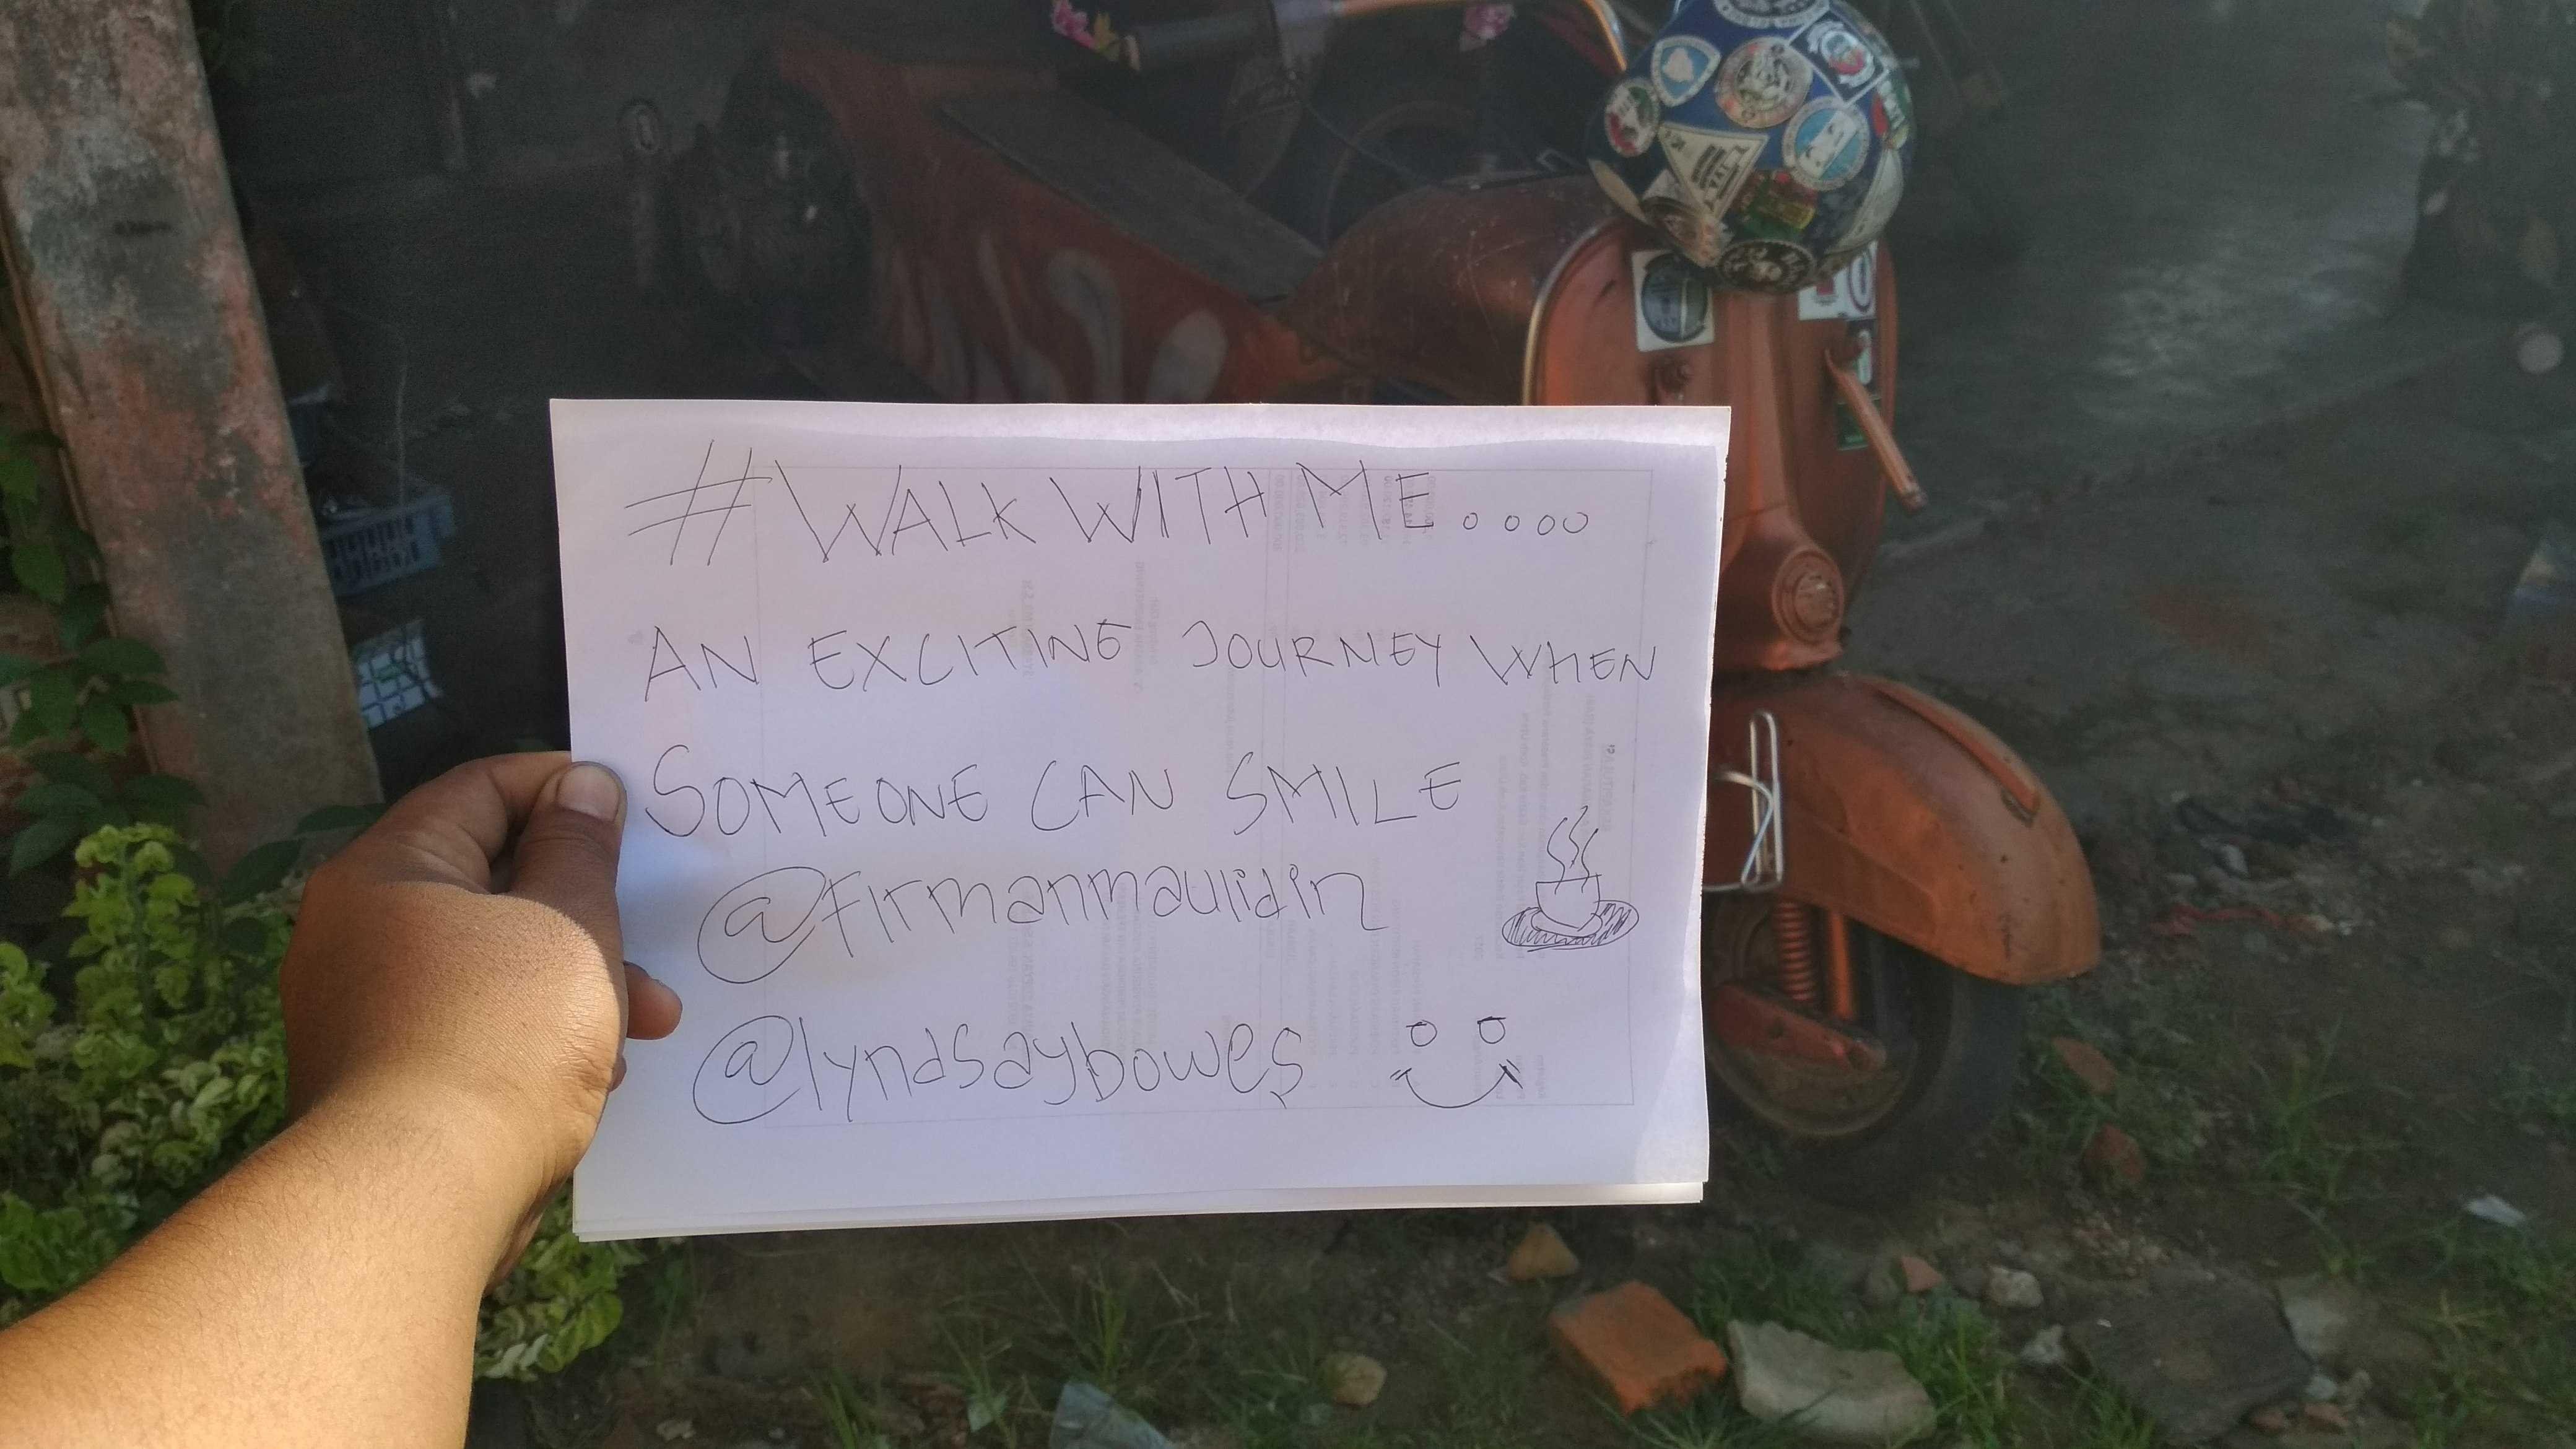 #WALK WITH ME....
AN EXCITING JOURNEY WHEN
SOMEONE CAN SMILE
@firmanmaulidin
@lyndsaybowes